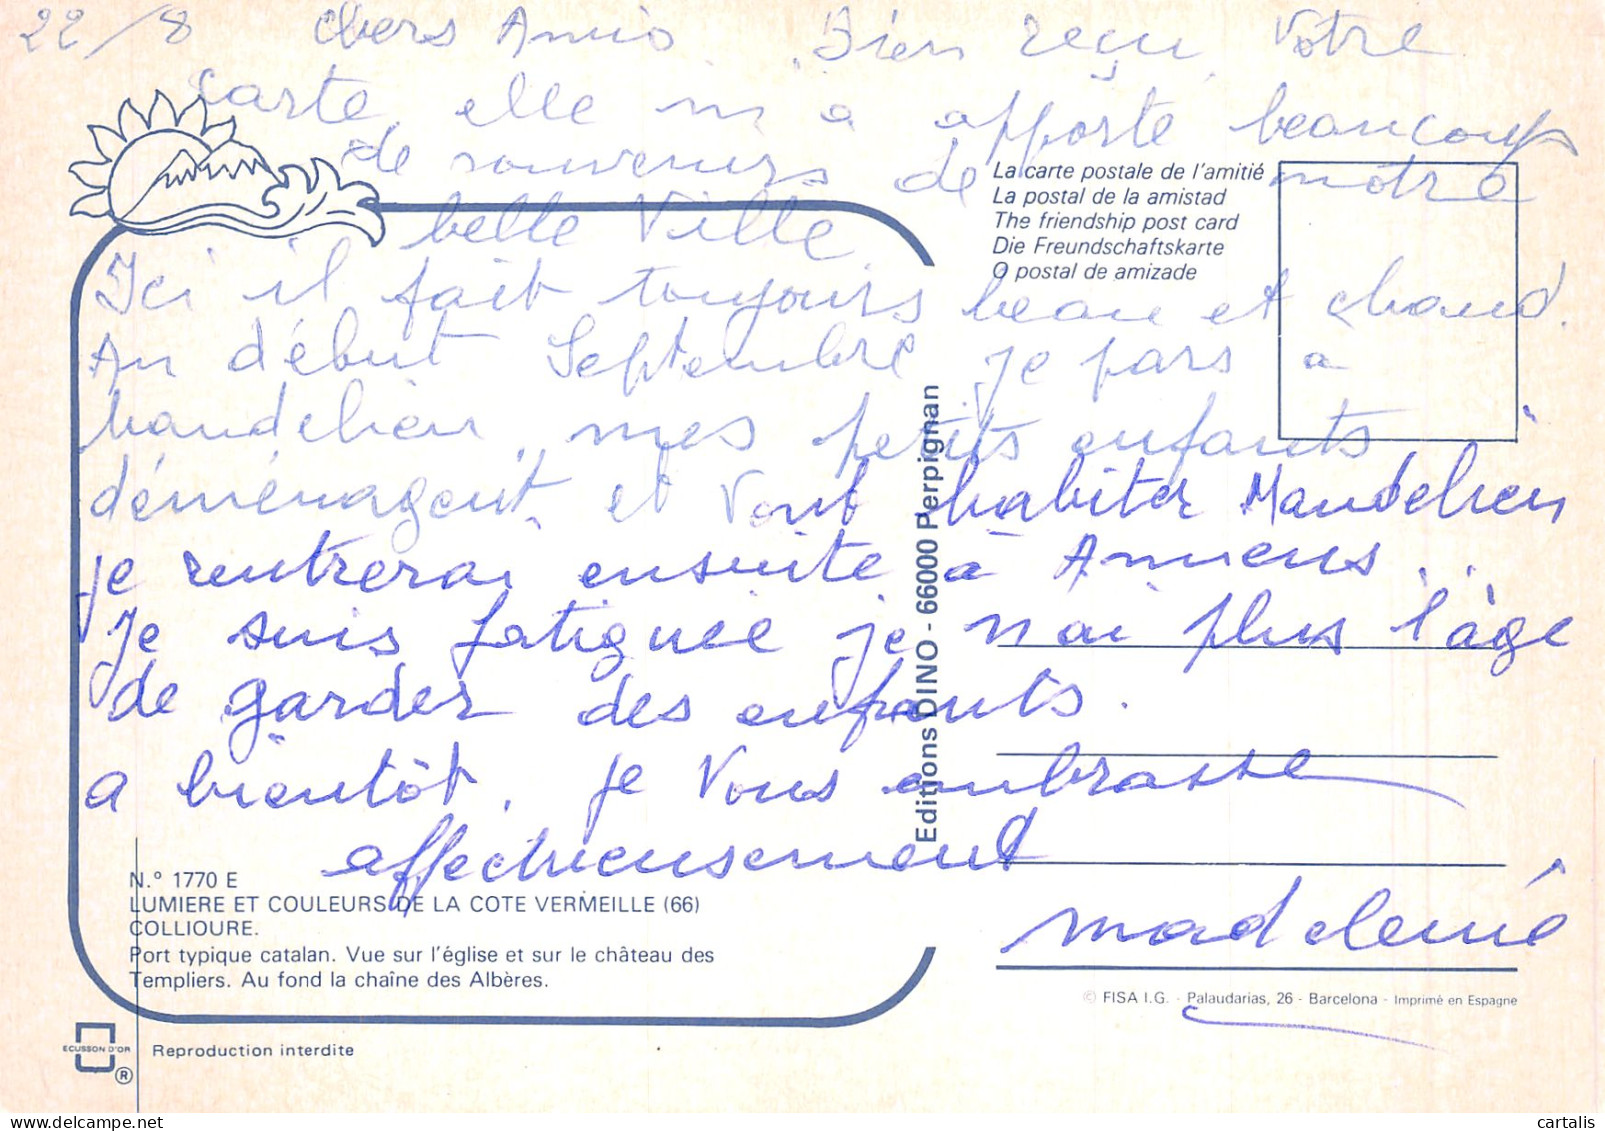 22/8 chers Amis Bien reçu Votre
carte, elle m a apporte beaucoup
de souvenirs de notre
La carte postale de l'amitié
La postal de la amistad
The friendship post card
Die Freundschaftskarte
O postal de amizade
belle Ville
Ici il fait toujours beau et chaud.
Au début Septembre je pars a
Mandelieu, mes petits enfants
déménagent et Vont habiter Mandelieu
je rentrerai ensuite à Amiens...
Je suis fatiguée je n'ai plus l'âge
de garder des enfants.
a bientôt. je Vous embrasse
affectueusement
madeleine
Editions DINO - 66000 Perpignan
N.º 1770 E
LUMIERE ET COULEURS DE LA COTE VERMEILLE (66)
COLLIOURE.
Port typique catalan. Vue sur l'église et sur le château des
Templiers. Au fond la chaîne des Albères.
© FISA I.G. - Palaudarias, 26 - Barcelona - Imprimé en Espagne
ECUSSON D'OR
®
Reproduction interdite
cartalis